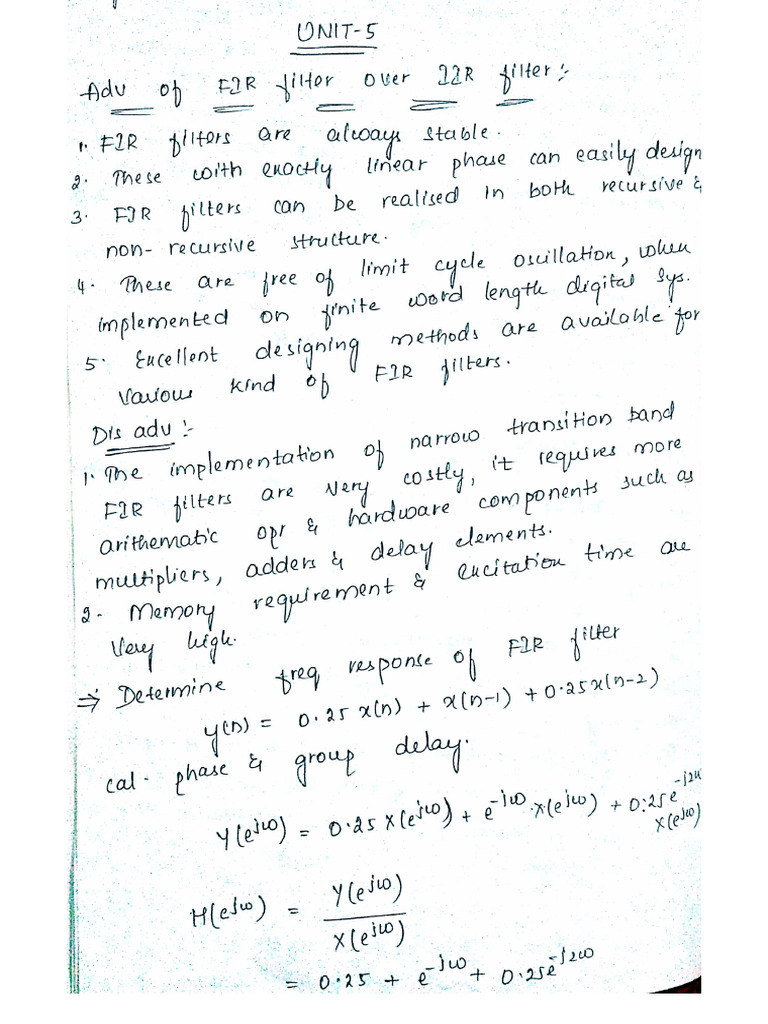 UNIT-5
Adv of FIR filter over IIR filter:-
1. FIR filters are always stable.
2. These with exactly linear phase can easily design
3. FIR filters can be realised in both recursive &
non-recursive structure.
4. These are free of limit cycle oscillation, when
implemented on finite word length digital sys.
5. Excellent designing methods are available for
various kind of FIR filters.
Dis adv :-
1. The implementation of narrow transition band
FIR filters are very costly, it requires more
arithematic opr & hardware components such as
multipliers, adders & delay elements.
2. Memory requirement & excitation time are
very high.
⇒ Determine freq response of FIR filter
y(n) = 0.25 x(n) + x(n-1) + 0.25x(n-2)
cal. phase & group delay.
Y(e^jω) = 0.25 X(e^jω) + e^-jω.X(e^jω) + 0.25e^-j2ω
X(e^jω)
H(e^jω) = Y(e^jω)
X(e^jω)
= 0.25 + e^-jω + 0.25e^-j2ω